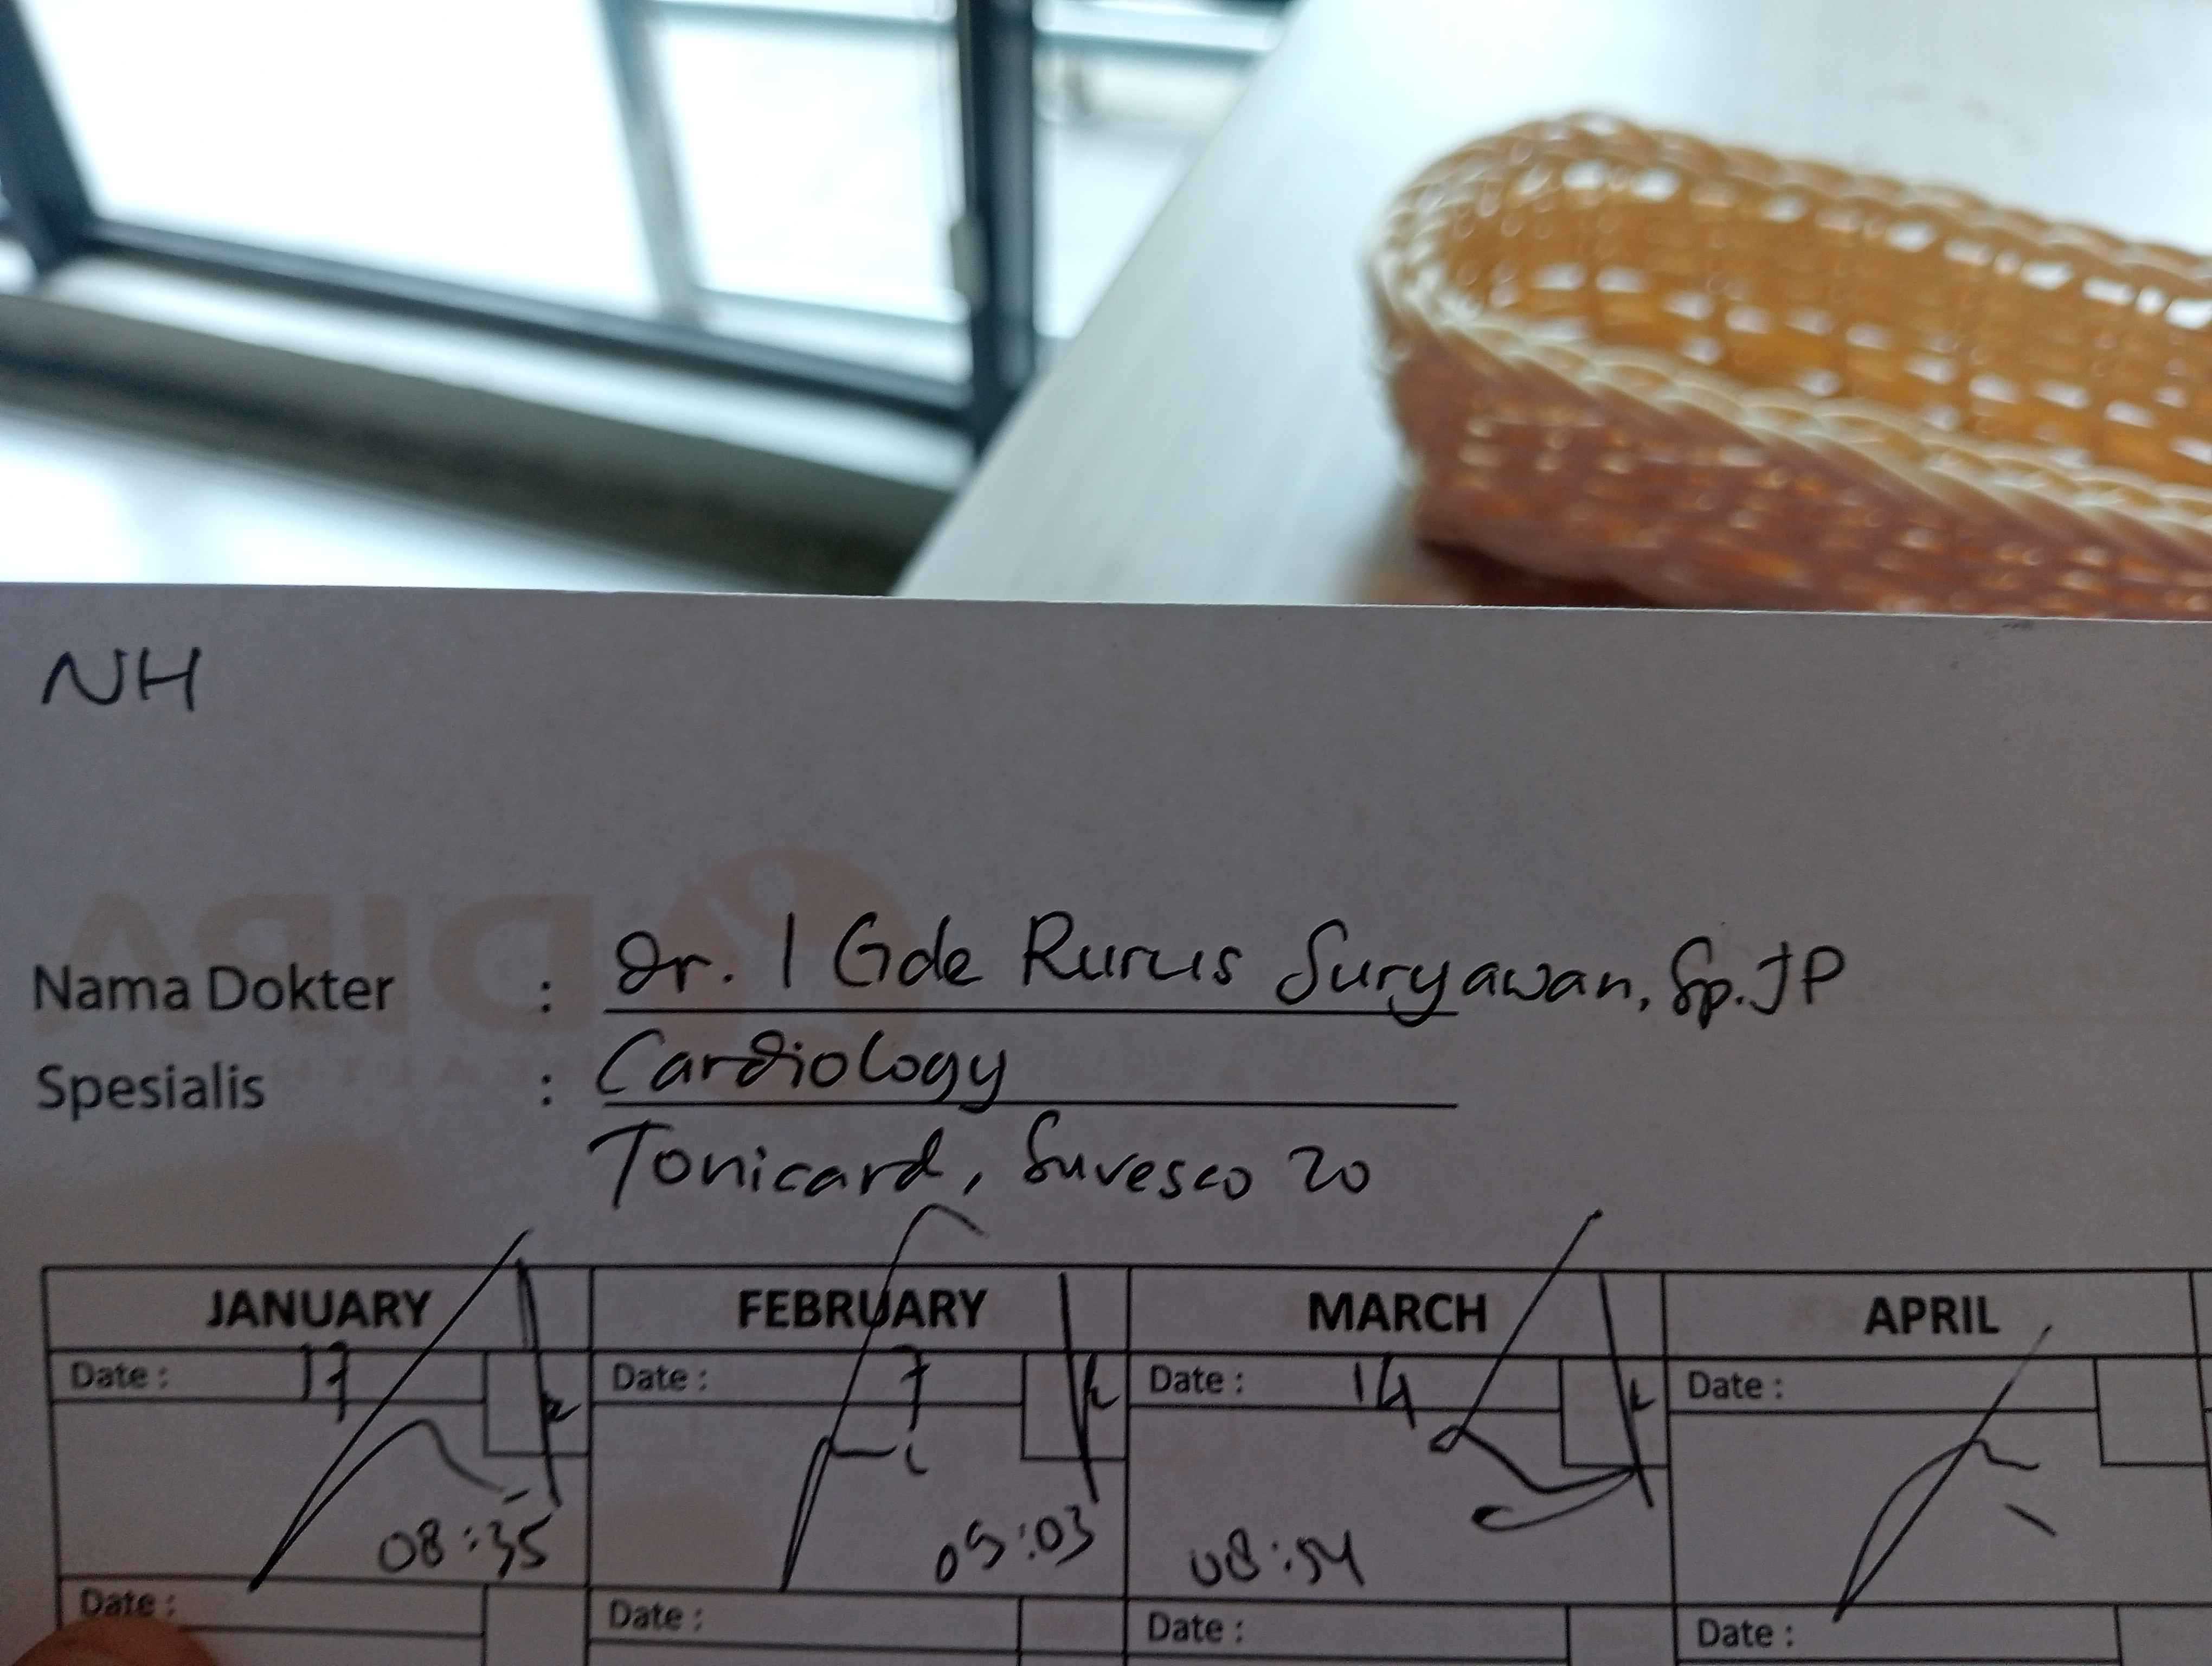 NH
Nama Dokter : Dr. I Gde Rurus Suryawan, Sp.JP
Spesialis : Cardiology
Tonicard, Suvesco 20
JANUARY FEBRUARY MARCH APRIL
Date : 17 Date : 7 Date : 14 Date :
08:35 09:03 08:54
Date : Date : Date : Date :